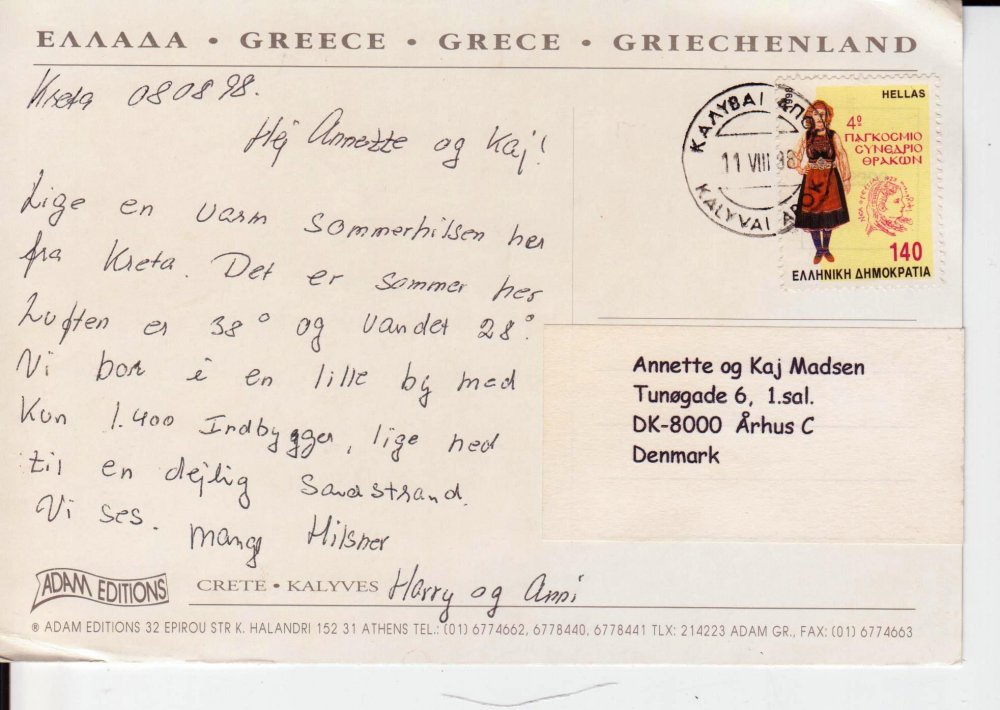 ΕΛΛΑΔΑ • GREECE • GRECE • GRIECHENLAND
Kreta 080898.
Hej Annette og Kaj!
Lige en varm sommerhilsen her
fra Kreta. Det er sommer her
Luften er 38° og vandet 28°.
Vi bor i en lille by med
kun 1.400 Indbygger, lige ned
til en dejlig Sandstrand.
Vi ses.
Mange Hilsner
Harry og Anni
ΚΑΛΥΒΑΙ ΑΠΟΚ
11 VIII 98
KALYVAI APOK
1998
HELLAS
4º
ΠΑΓΚΟСΜΙΟ
СΥΝΕΔΡΙΟ
ΘΡΑΚΩΝ
140
ΕΛΛΗΝΙΚΗ ΔΗΜΟΚΡΑΤΙΑ
Annette og Kaj Madsen
Tunøgade 6, 1.sal.
DK-8000 Århus C
Denmark
ADAM EDITIONS
CRETE • KALYVES
® ADAM EDITIONS 32 EPIROU STR K. HALANDRI 152 31 ATHENS TEL.: (01) 6774662, 6778440, 6778441 TLX: 214223 ADAM GR., FAX: (01) 6774663